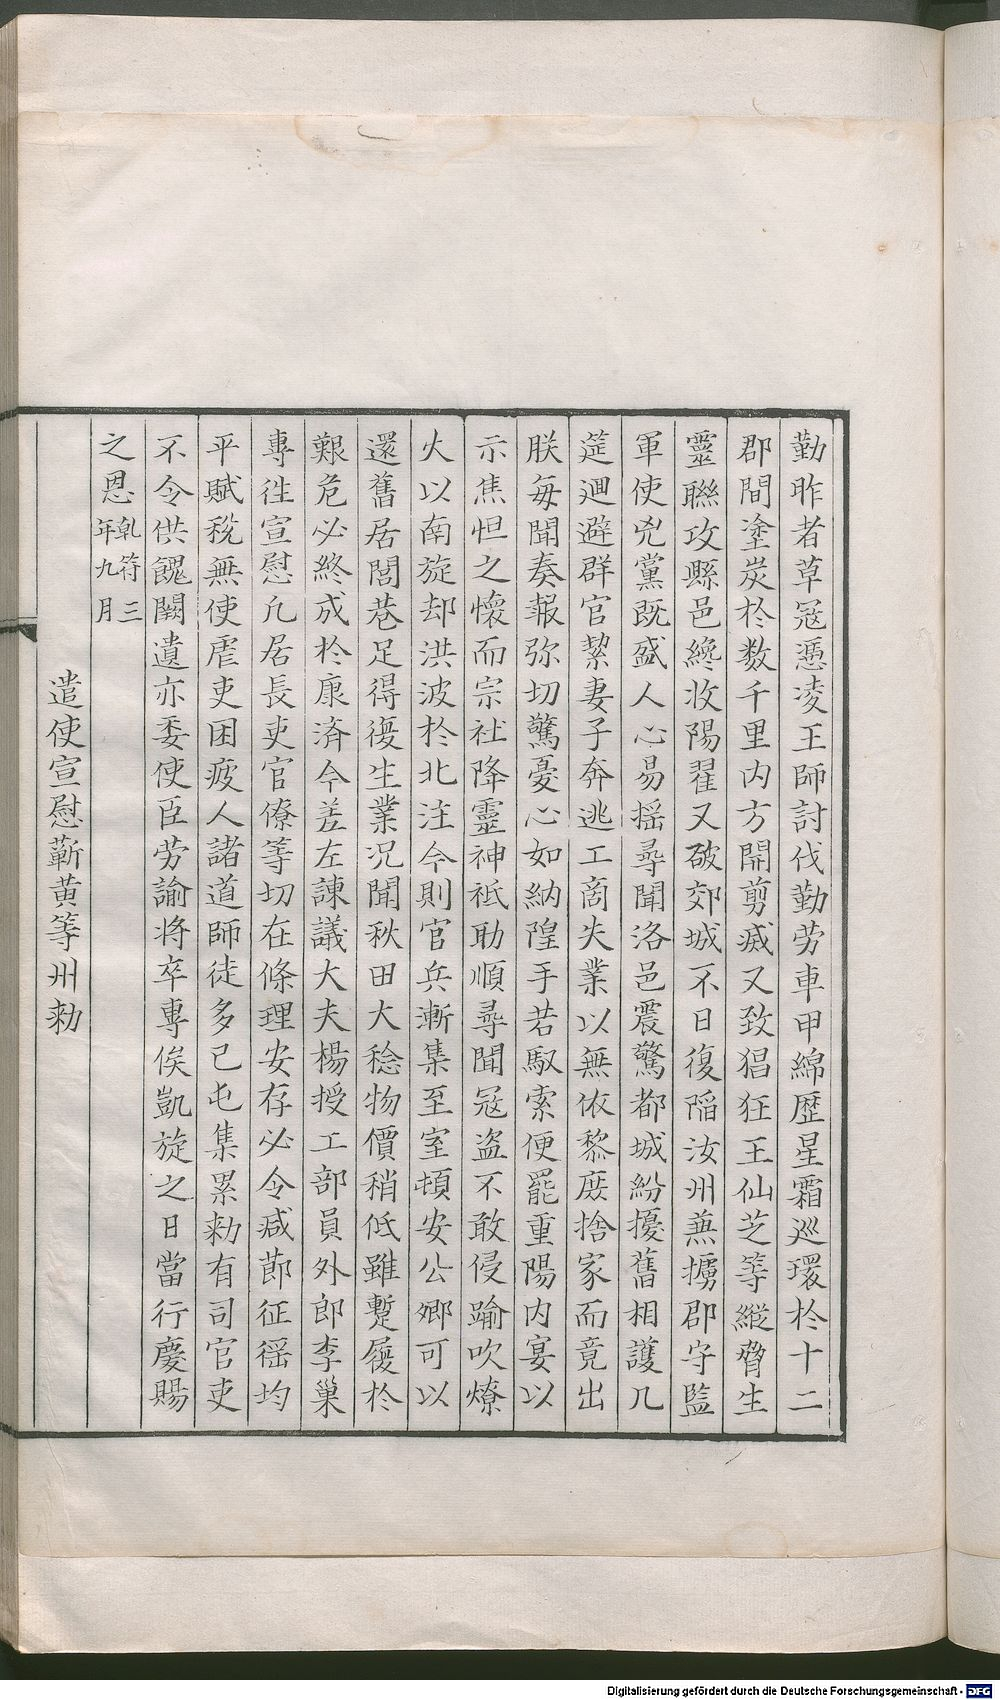 勤昨者草寇憑凌王師討伐勤劳車甲綿歴星霜巡環扵十二
郡間塗炭扵数千里内方開剪烕又致猖狂王仙芝等縱脅生
靈聮攻縣邑纔收陽翟又破郊城不日復䧟汝州兼擄郡守監
軍使兇黨既盛人心易揺尋聞洛邑震驚都城紛擾舊相護几
筵迴避群官挈妻子奔逃工商失業以無依黎庻捨家而竟出
朕每聞奏報弥切驚憂心如納隍手若馭索便罷重陽内宴以
示焦怛之懷而宗社降靈神祗助順尋聞冦盗不敢侵踰吹燎
火以南旋却洪波扵北注今則官兵漸集至室頓安公卿可以
還舊居閭巷足得復生業况聞秋田大稔物價稍低雖蹔履扵
艱危必終成扵康済今差左諫議大夫楊授工部員外郎李巢
專徃宣慰凢居長吏官僚等切在條理安存必令减節征徭均
平賦稅無使虐吏困疲人諸道師徒多已屯集累勑有司官吏
不令供餽闕遺亦委使臣劳諭将卒專俟凱旋之日當行慶賜
之恩乾符三年九月
遣使宣慰蘄黄等州勑
Digitalisierung gefördert durch die Deutsche Forschungsgemeinschaft - DFG